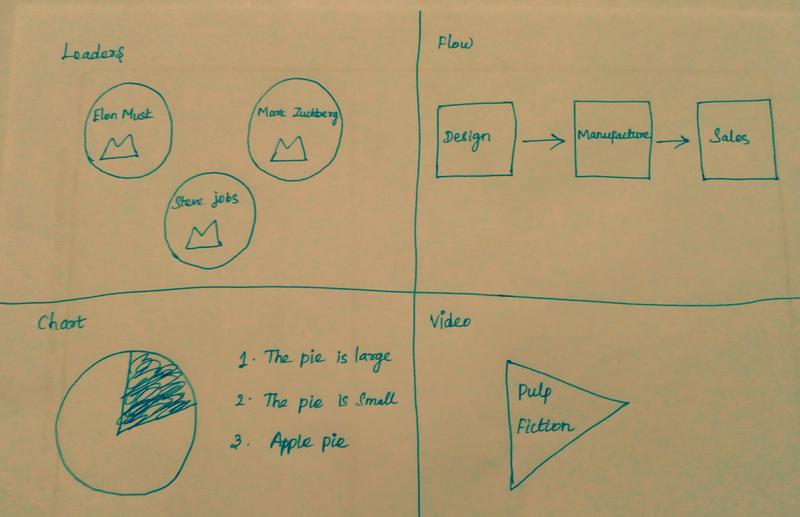 Leaders
Elon Musk
Mark Zuckberg
Steve jobs
Flow
Design
Manufacture
Sales
Chart
1. The pie is large
2. The pie is Small
3. Apple pie
Video
Pulp
Fiction